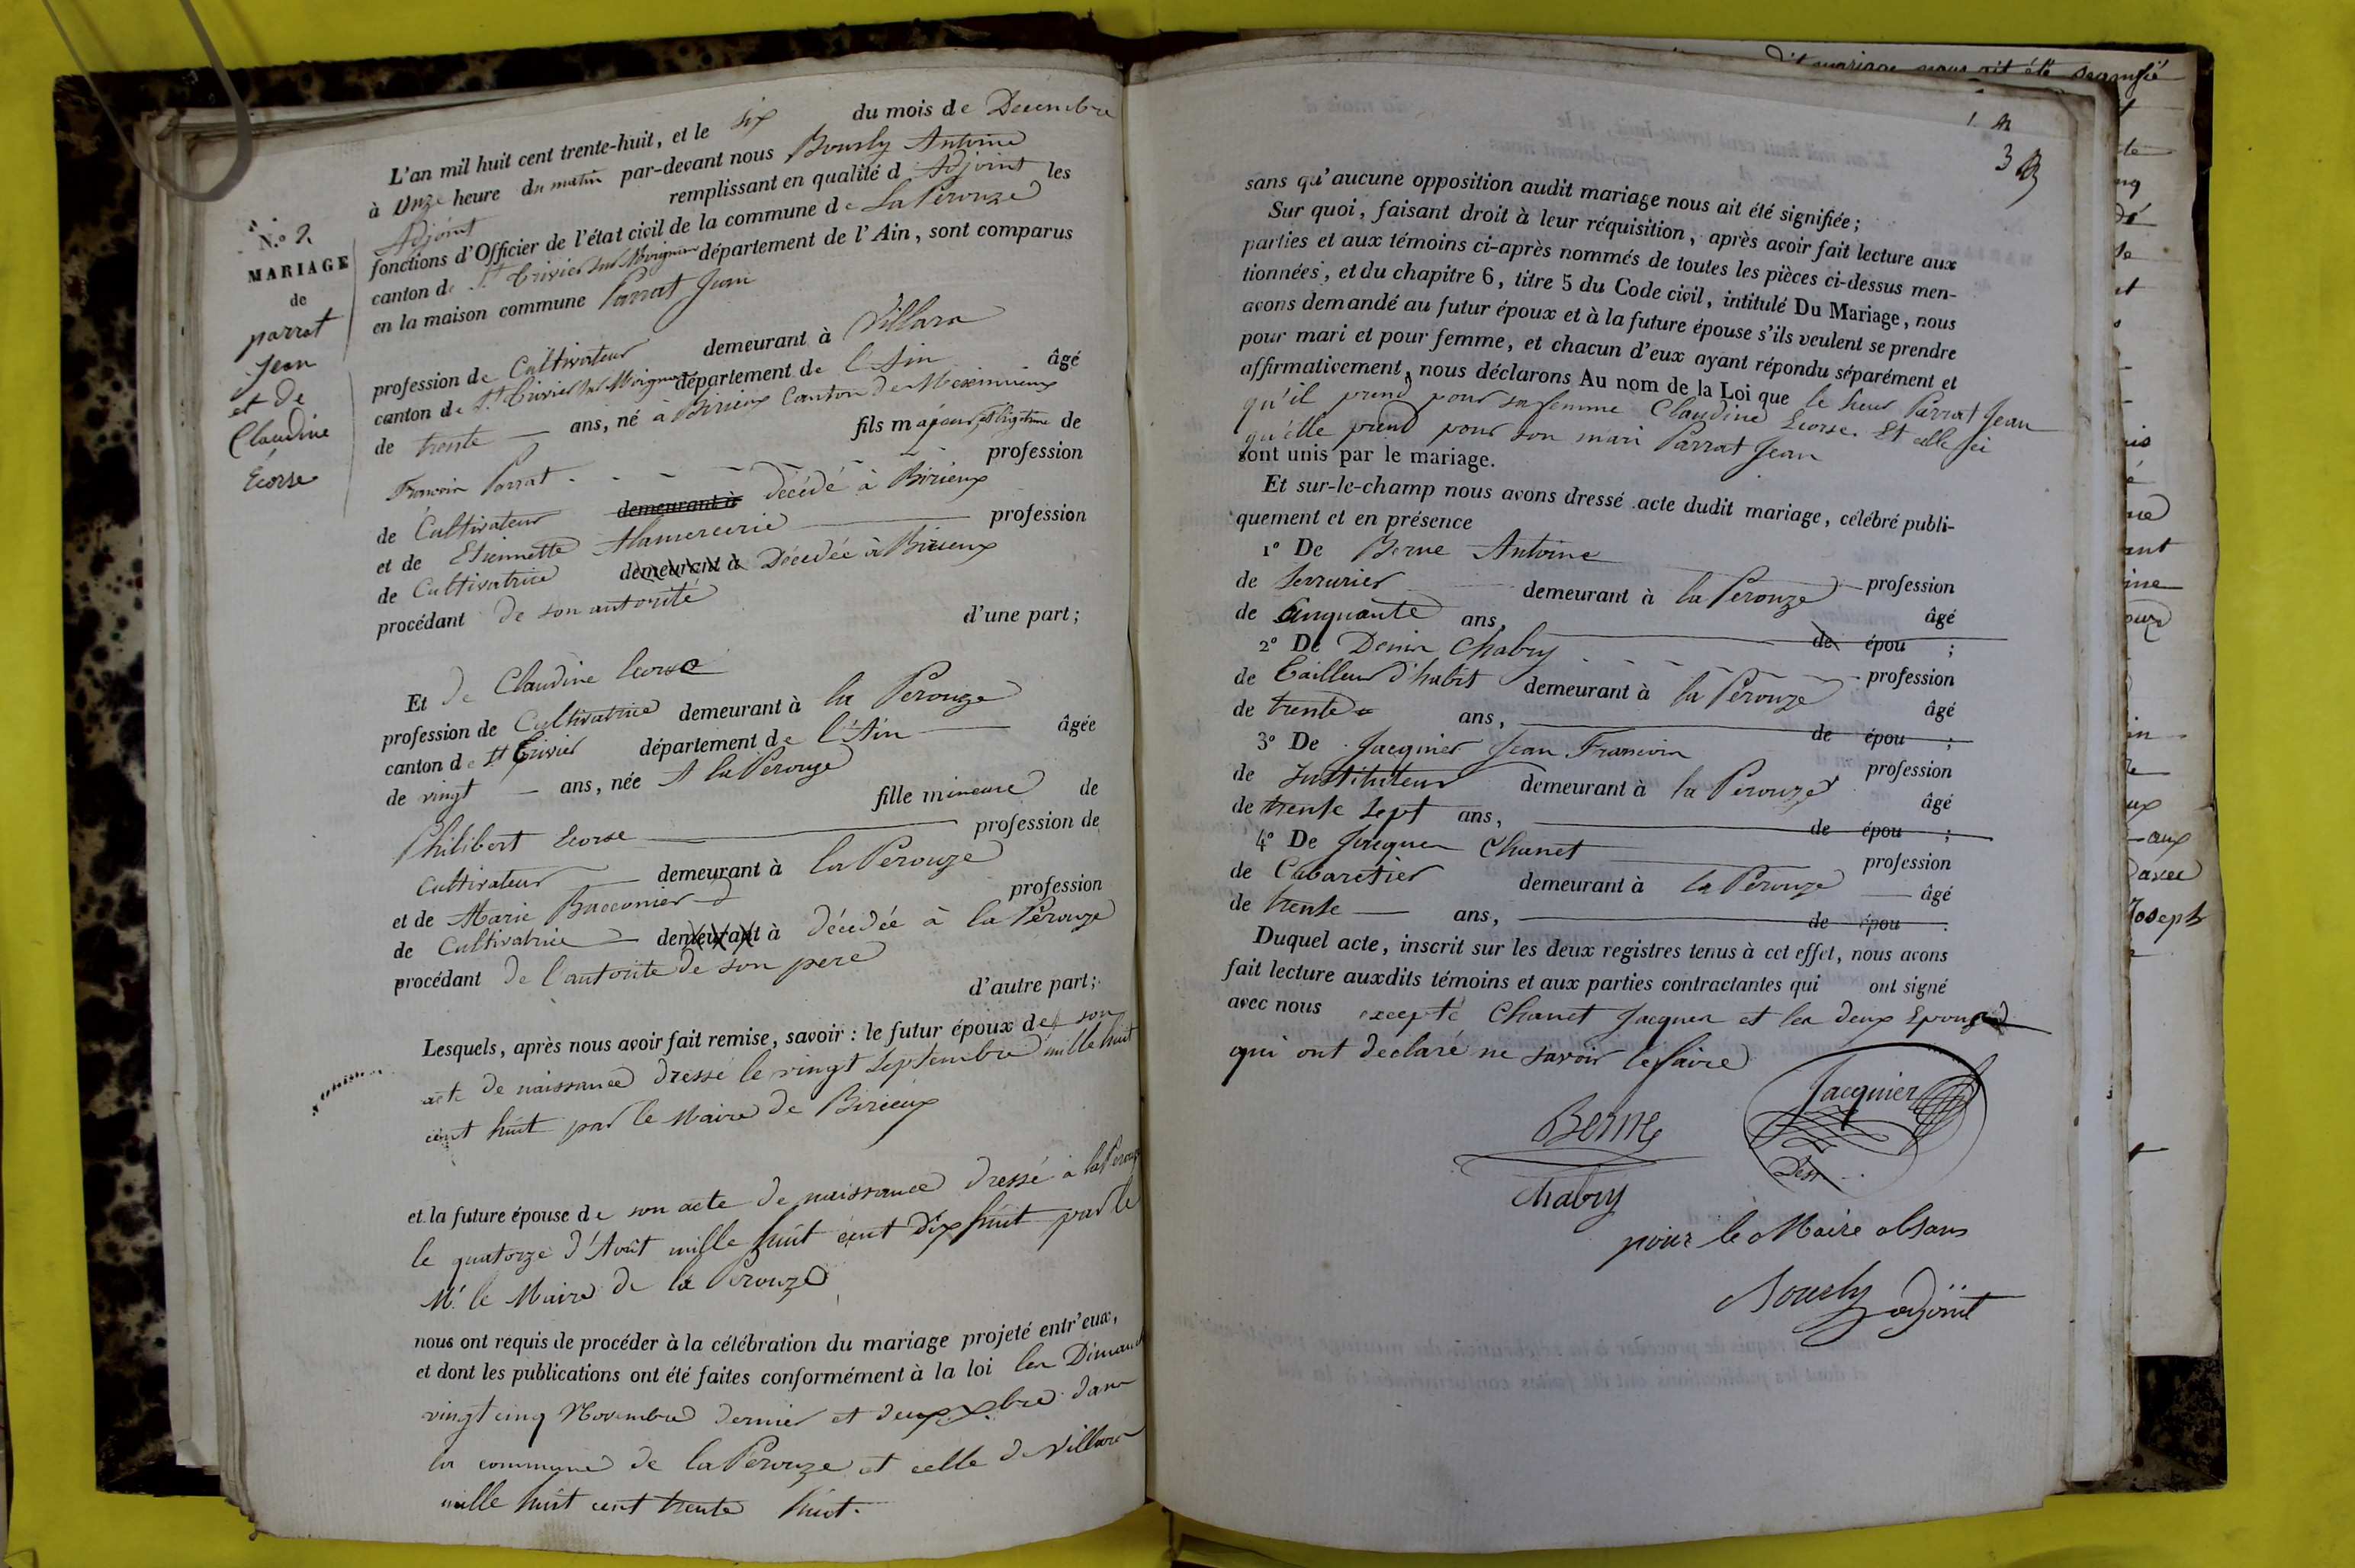 N.º 2
MARIAGE
de
parrat
Jean
et de
Claudine
Ecorse
L'an mil huit cent trente-huit, et le six du mois de Decembre
à Onze heure du matin par-devant nous Bourly Antoine
Adjoint remplissant en qualité d Adjoint les
fonctions d'Officier de l'état civil de la commune de La Pérouze
canton de St Trivier sur Moignans département de l'Ain, sont comparus
en la maison commune Parrat Jean
profession de Cultivateur demeurant à Villars
canton de St Trivier sur Moignans département de l'Ain âgé
de trente ans, né à Birieux Canton de Meximieux
fils majeur, et légitime de
François Parrat profession
de Cultivateur demeurant à décédé à Birieux
et de Etiennette Alamercerie profession
de Cultivatrice demeurant à Décedée à Birieux
procédant de son autorité
d'une part;
Et de Claudine Ecorse
profession de Cultivatrice demeurant à la Pérouze
canton de St Trivier département de l'Ain âgée
de vingt ans, née A la Pérouze
fille mineure de
Philibert Ecorse profession de
Cultivateur demeurant à la Pérouze
et de Marie Bacconier profession
de Cultivatrice demeurant à décédée à la Pérouze
procédant de l'autorité de son pere
d'autre part;
Lesquels, après nous avoir fait remise, savoir : le futur époux de son
acte de naissance dressé le vingt Septembre mille huit
cent huit par le Maire de Birieux
et la future épouse de son acte de naissance dressé à la Pérouze
le quatorze d'Août mille huit cent Dix huit par le
Mr le Maire de la Pérouze
nous ont requis de procéder à la célébration du mariage projeté entr'eux,
et dont les publications ont été faites conformément à la loi les Dimanch
vingt cinq Novembre dernier et deux Xbre dans
la commune de la Pérouze et celle de Villars
mille huit cent trente huit.
dit mariage nous ait été signifié
3
sans qu'aucune opposition audit mariage nous ait été signifiée;
Sur quoi, faisant droit à leur réquisition, après avoir fait lecture aux
parties et aux témoins ci-après nommés de toutes les pièces ci-dessus men-
tionnées, et du chapitre 6, titre 5 du Code civil, intitulé Du Mariage, nous
avons demandé au futur époux et à la future épouse s'ils veulent se prendre
pour mari et pour femme, et chacun d'eux ayant répondu séparément et
affirmativement, nous déclarons Au nom de la Loi que le sieur Parrat Jean
qu'il prend pour sa femme Claudine Ecorse. Et elle ici
qu'elle prend pour son mari Parrat Jean
sont unis par le mariage.
Et sur-le-champ nous avons dressé acte dudit mariage, célébré publi-
quement et en présence
1º De Berne Antoine profession
de Serrurier demeurant à la Pérouze âgé
de Cinquante ans, de épou ;
2º De Denis Chabry profession
de Tailleur d'habit demeurant à la Pérouze âgé
de trente ans, de épou ;
3º De Jacquier Jean François profession
de Instituteur demeurant à la Pérouze âgé
de trente sept ans, de épou ;
4º De Jacques Chanet profession
de Cabaretier demeurant à la Pérouze âgé
de trente ans, de épou .
Duquel acte, inscrit sur les deux registres tenus à cet effet, nous avons
fait lecture auxdits témoins et aux parties contractantes qui ont signé
avec nous excepté Chanet Jacques et les deux Epoux
qui ont déclaré ne savoir le faire
Jacquier
Berne
Chabry
pour le Maire absans
Bourly adjoint
aux
avec
Joseph